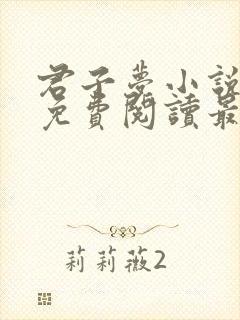 君子夢小說
免費閱讀最
莉莉薇2